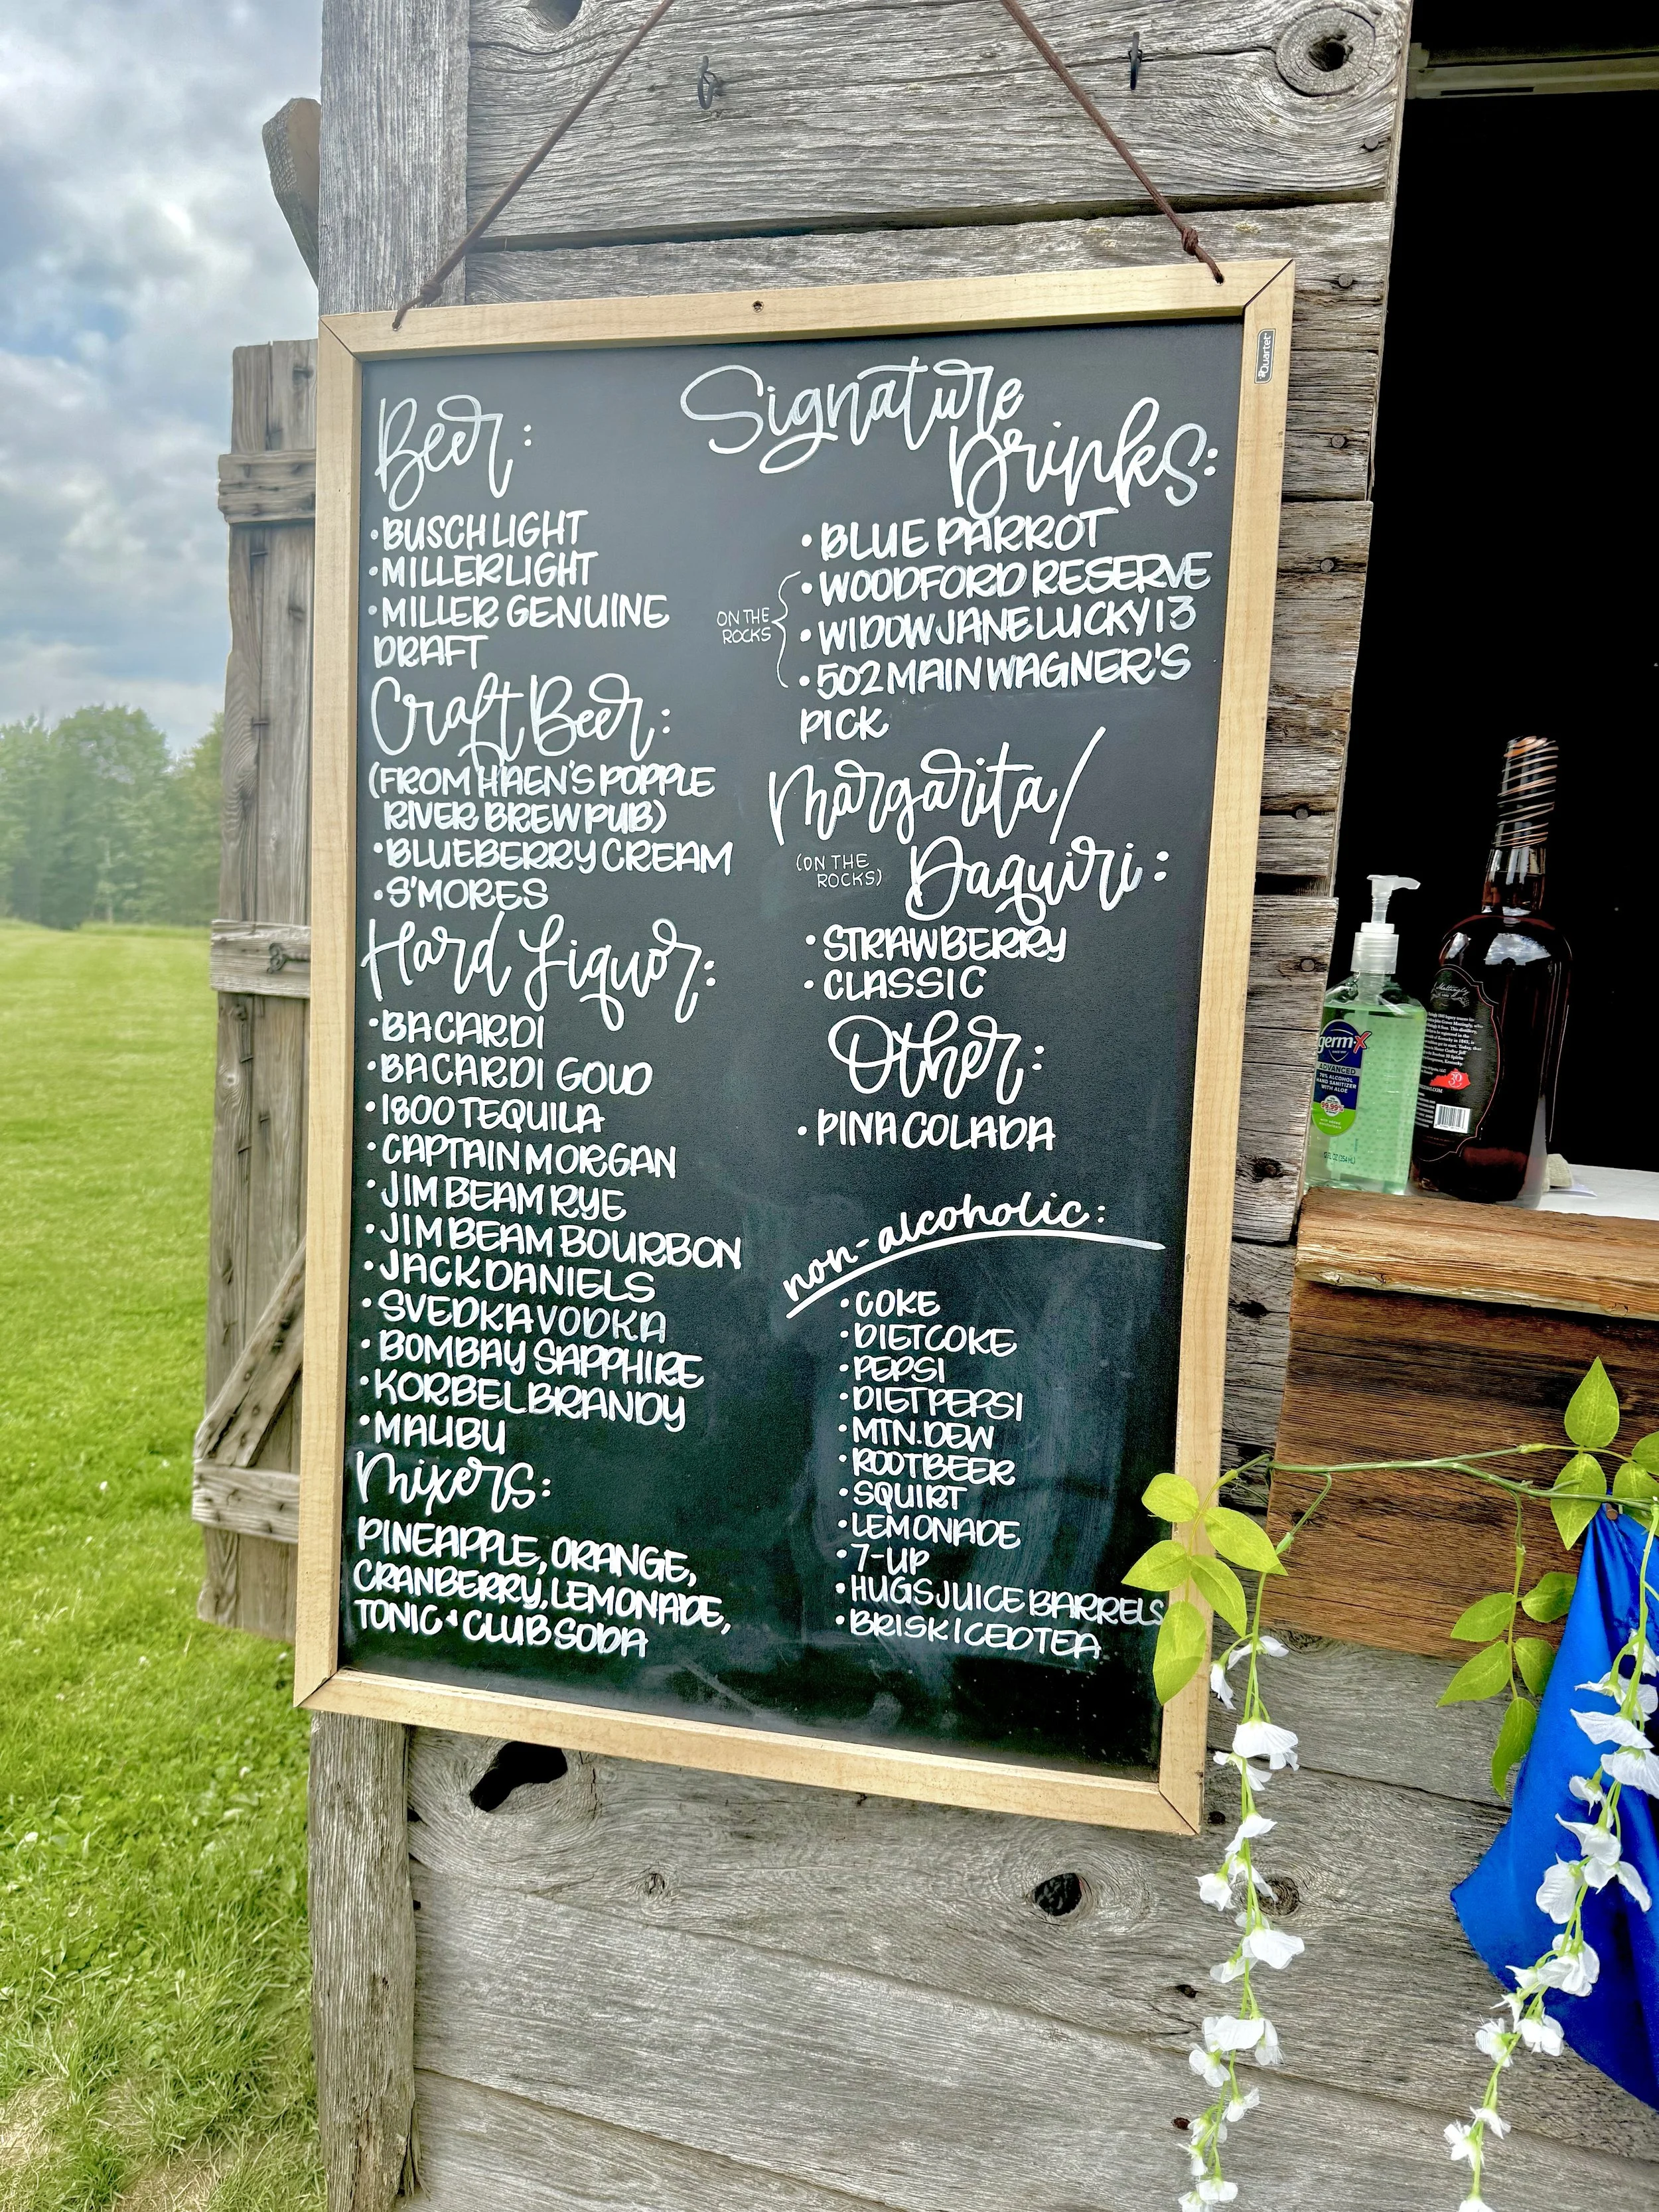 Beer:
• BUSCH LIGHT
• MILLER LIGHT
• MILLER GENUINE
DRAFT
Craft Beer:
(FROM HAEN'S POPPLE
RIVER BREW PUB)
• BLUEBERRY CREAM
• S'MORES
Hard Liquor:
• BACARDI
• BACARDI GOLD
• 1800 TEQUILA
• CAPTAIN MORGAN
• JIM BEAM RYE
• JIM BEAM BOURBON
• JACK DANIELS
• SVEDKA VODKA
• BOMBAY SAPPHIRE
• KORBEL BRANDY
• MALIBU
Mixers:
PINEAPPLE, ORANGE,
CRANBERRY, LEMONADE,
TONIC + CLUB SODA
Signature
Drinks:
• BLUE PARROT
• WOODFORD RESERVE
ON THE
ROCKS
• WIDOW JANE LUCKY 13
• 502 MAIN WAGNER'S
PICK
Margarita/
(ON THE
ROCKS)
Daquiri:
• STRAWBERRY
• CLASSIC
Other:
• PINA COLADA
non-alcoholic:
• COKE
• DIET COKE
• PEPSI
• DIET PEPSI
• MTN. DEW
• ROOTBEER
• SQUIRT
• LEMONADE
• 7-UP
• HUGS JUICE BARRELS
• BRISK ICED TEA
Quartet
germ-X
ADVANCED
70% ALCOHOL
HAND SANITIZER
WITH ALOE
99.99%